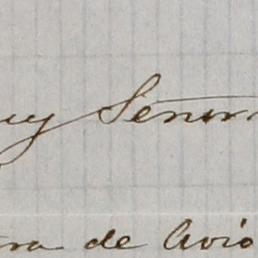 uy Señor
ra de Avió